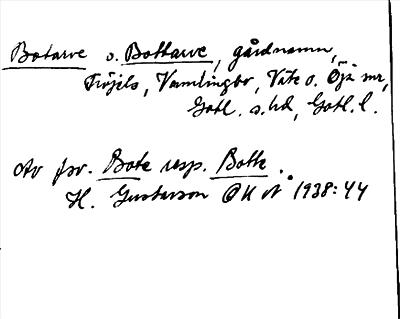 Botarve o. Bottarve, gårdnamn,
Fröjels, Vamlingbo, Väte o. Öja snr,
Gotl. s. hd, Gotl. l.
Av pn. Bote resp. Botte.
H. Gustavson GK nr 1938:44